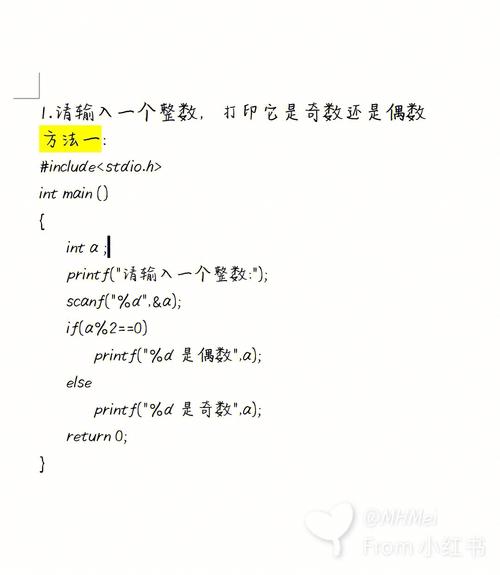 1.请输入一个整数，打印它是奇数还是偶数
方法一:
#include<stdio.h>
int main ()
{
int a ;
printf("请输入一个整数:");
scanf("%d",&a);
if(a%2==0)
printf("%d 是偶数",a);
else
printf("%d 是奇数",a);
return 0;
}
@MHMei
From 小红书